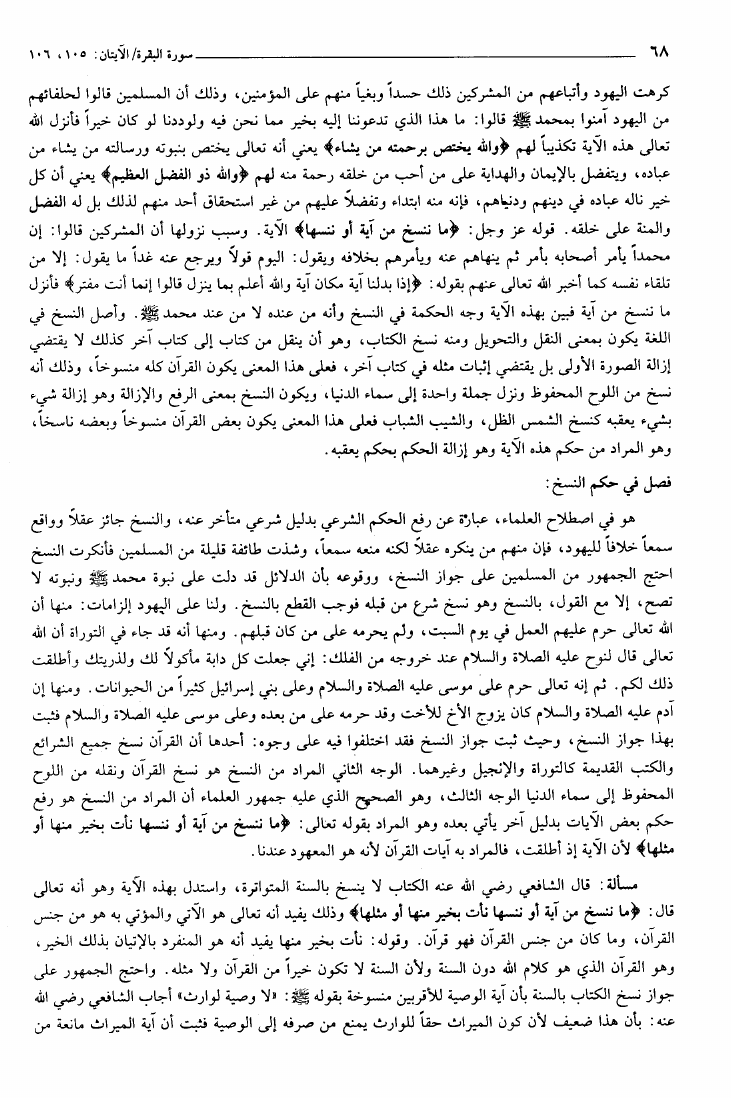 ٦٨ ـــــــــــــــــــــــــــــــــــــــــــــــــــــــــــــ سورة البقرة/ الآيتان: ١٠٥، ١٠٦
كرهت اليهود وأتباعهم من المشركين ذلك حسداً وبغياً منهم على المؤمنين، وذلك أن المسلمين قالوا لحلفائهم
من اليهود آمنوا بمحمد ﷺ قالوا: ما هذا الذي تدعوننا إليه بخير مما نحن فيه ولوددنا لو كان خيراً فأنزل الله
تعالى هذه الآية تكذيباً لهم ﴿والله يختص برحمته من يشاء﴾ يعني أنه تعالى يختص بنبوته ورسالته من يشاء من
عباده، ويتفضل بالإيمان والهداية على من أحب من خلقه رحمة منه لهم ﴿والله ذو الفضل العظيم﴾ يعني أن كل
خير ناله عباده في دينهم ودنياهم، فإنه منه ابتداء وتفضلاً عليهم من غير استحقاق أحد منهم لذلك بل له الفضل
والمنة على خلقه. قوله عز وجل: ﴿ما ننسخ من آية أو ننسها﴾ الآية. وسبب نزولها أن المشركين قالوا: إن
محمداً يأمر أصحابه بأمر ثم ينهاهم عنه ويأمرهم بخلافه ويقول: اليوم قولاً ويرجع عنه غداً ما يقول: إلا من
تلقاء نفسه كما أخبر الله تعالى عنهم بقوله: ﴿إذا بدلنا آية مكان آية والله أعلم بما ينزل قالوا إنما أنت مفتر﴾ فأنزل
ما ننسخ من آية فبين بهذه الآية وجه الحكمة في النسخ وأنه من عنده لا من عند محمد ﷺ. وأصل النسخ في
اللغة يكون بمعنى النقل والتحويل ومنه نسخ الكتاب، وهو أن ينقل من كتاب إلى كتاب آخر كذلك لا يقتضي
إزالة الصورة الأولى بل يقتضي إثبات مثله في كتاب آخر، فعلى هذا المعنى يكون القرآن كله منسوخاً، وذلك أنه
نسخ من اللوح المحفوظ ونزل جملة واحدة إلى سماء الدنيا، ويكون النسخ بمعنى الرفع والإزالة وهو إزالة شيء
بشيء يعقبه كنسخ الشمس الظل، والشيب الشباب فعلى هذا المعنى يكون بعض القرآن منسوخاً وبعضه ناسخاً،
وهو المراد من حكم هذه الآية وهو إزالة الحكم بحكم يعقبه.
فصل في حكم النسخ:
هو في اصطلاح العلماء، عبارة عن رفع الحكم الشرعي بدليل شرعي متأخر عنه، والنسخ جائز عقلاً وواقع
سمعاً خلافاً لليهود، فإن منهم من ينكره عقلاً لكنه منعه سمعاً، وشذت طائفة قليلة من المسلمين فأنكرت النسخ
احتج الجمهور من المسلمين على جواز النسخ، ووقوعه بأن الدلائل قد دلت على نبوة محمد ﷺ ونبوته لا
تصح، إلا مع القول، بالنسخ وهو نسخ شرع من قبله فوجب القطع بالنسخ. ولنا على اليهود إلزامات: منها أن
الله تعالى حرم عليهم العمل في يوم السبت، ولم يحرمه على من كان قبلهم. ومنها أنه قد جاء في التوراة أن الله
تعالى قال لنوح عليه الصلاة والسلام عند خروجه من الفلك: إني جعلت كل دابة مأكولاً لك ولذريتك وأطلقت
ذلك لكم. ثم إنه تعالى حرم على موسى عليه الصلاة والسلام وعلى بني إسرائيل كثيراً من الحيوانات. ومنها إن
آدم عليه الصلاة والسلام كان يزوج الأخ للأخت وقد حرمه على من بعده وعلى موسى عليه الصلاة والسلام فثبت
بهذا جواز النسخ، وحيث ثبت جواز النسخ فقد اختلفوا فيه على وجوه: أحدها أن القرآن نسخ جميع الشرائع
والكتب القديمة كالتوراة والإنجيل وغيرهما. الوجه الثاني المراد من النسخ هو نسخ القرآن ونقله من اللوح
المحفوظ إلى سماء الدنيا الوجه الثالث، وهو الصحيح الذي عليه جمهور العلماء أن المراد من النسخ هو رفع
حكم بعض الآيات بدليل آخر يأتي بعده وهو المراد بقوله تعالى: ﴿ما ننسخ من آية أو ننسها نأت بخير منها أو
مثلها﴾ لأن الآية إذ أطلقت، فالمراد به آيات القرآن لأنه هو المعهود عندنا.
مسألة: قال الشافعي رضي الله عنه الكتاب لا ينسخ بالسنة المتواترة، واستدل بهذه الآية وهو أنه تعالى
قال: ﴿ما ننسخ من آية أو ننسها نأت بخير منها أو مثلها﴾ وذلك يفيد أنه تعالى هو الآتي والمؤتي به هو من جنس
القرآن، وما كان من جنس القرآن فهو قرآن. وقوله: نأت بخير منها يفيد أنه هو المنفرد بالإتيان بذلك الخير،
وهو القرآن الذي هو كلام الله دون السنة ولأن السنة لا تكون خيراً من القرآن ولا مثله. واحتج الجمهور على
جواز نسخ الكتاب بالسنة بأن آية الوصية للأقربين منسوخة بقوله ﷺ: «لا وصية لوارث» أجاب الشافعي رضي الله
عنه: بأن هذا ضعيف لأن كون الميراث حقاً للوارث يمنع من صرفه إلى الوصية فثبت أن آية الميراث مانعة من